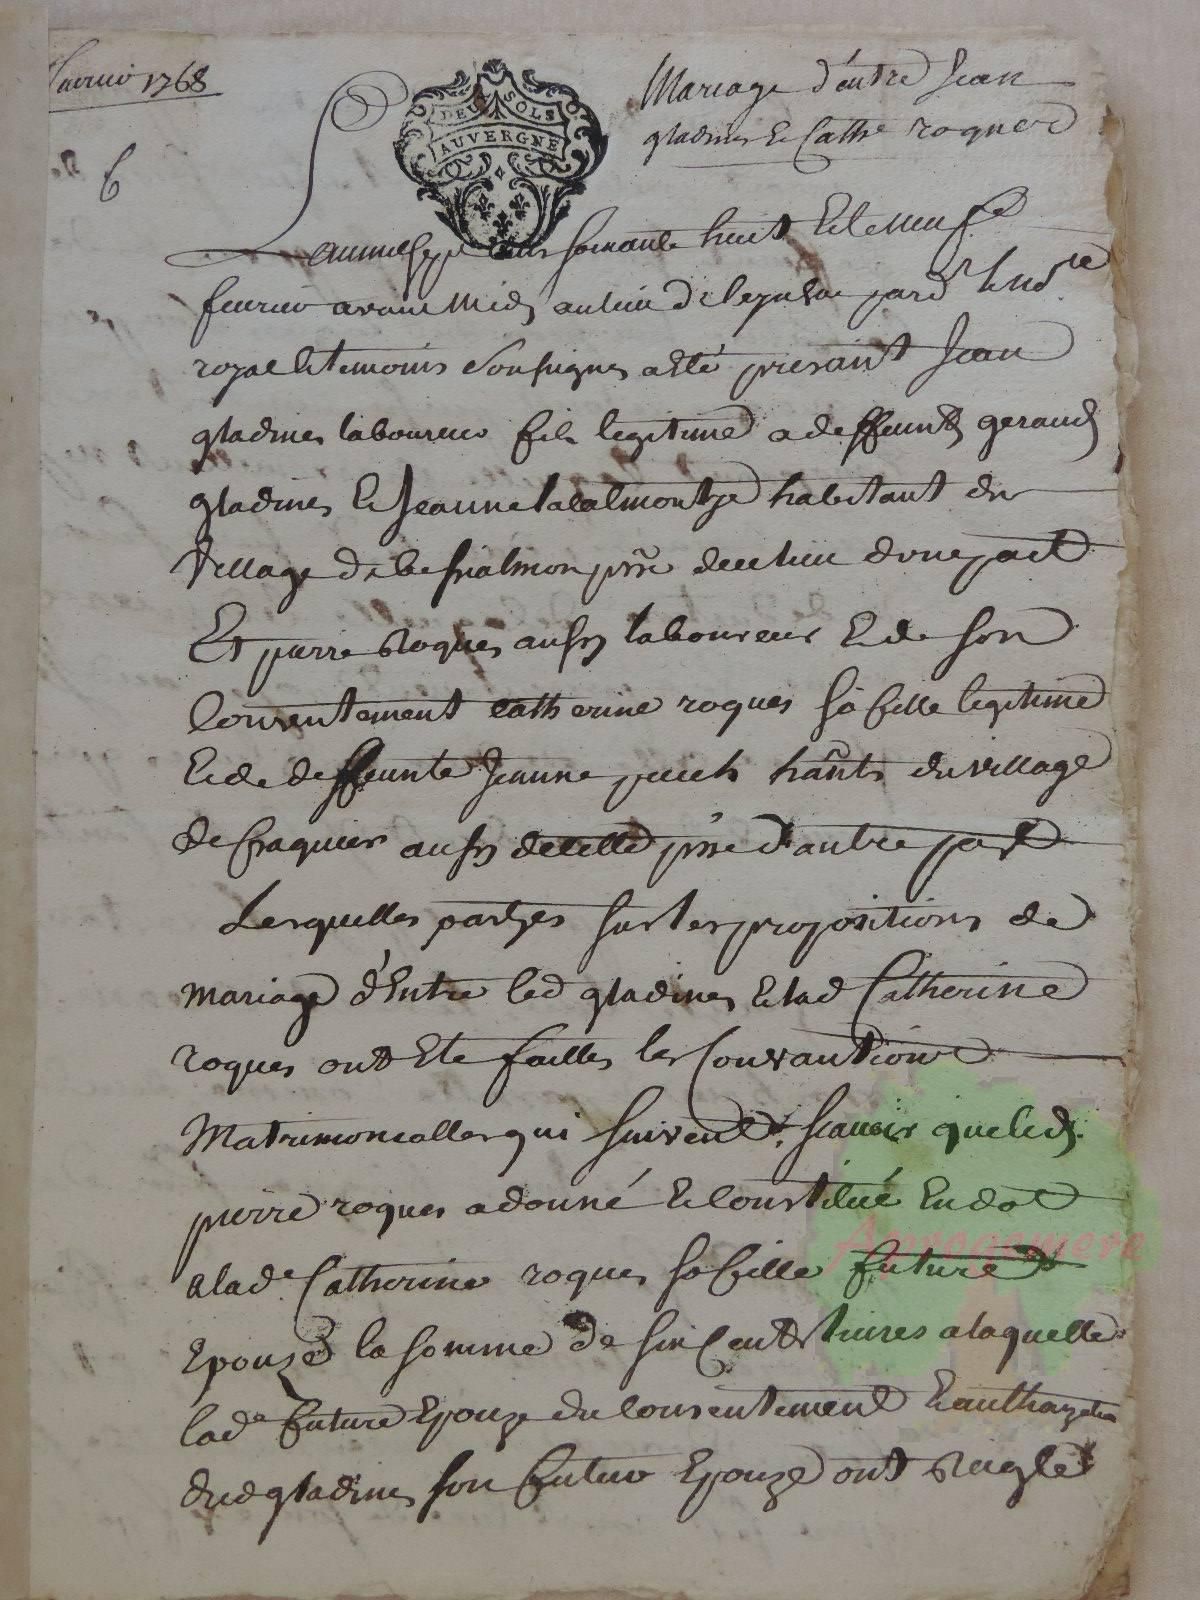 fevrier 1768
6
DEUX SOLS
AUVERGNE
Mariage d'entre Jean
gladines et Cathe roques
L'an mil sept cens soixante huit et le neuf
fevrier avant Midy au lieu de par dt le nore
royal et temoins soussignes a eté presant Jean
gladines laboureur fils legitime a deffeunts geraud
gladines et Jeanne lacalmontye habitant du
Village de prse de ce lieu d'une part
Et pierre Roques aussy laboureur et de son
Consentement catherine roques sa fille legitime
et de deffeunte Jeanne puech hants du village
de fraquier aussy de celle prse d'autre part
Lesquelles partyes sur les propositions de
mariage d'Entre led gladines et lad Catherine
roques ont Ete faittes les Convantions
Matrimonialles qui suivent, scauoir que led
pierre roques a donné et Constitué En dot
a lade Catherine roques sa fille future
Epouze la somme de six Cents liures a laquelle
lade future Epouze du Consentement et authorization
dud gladines son futur Epouze ont Reigle
Aprogemere